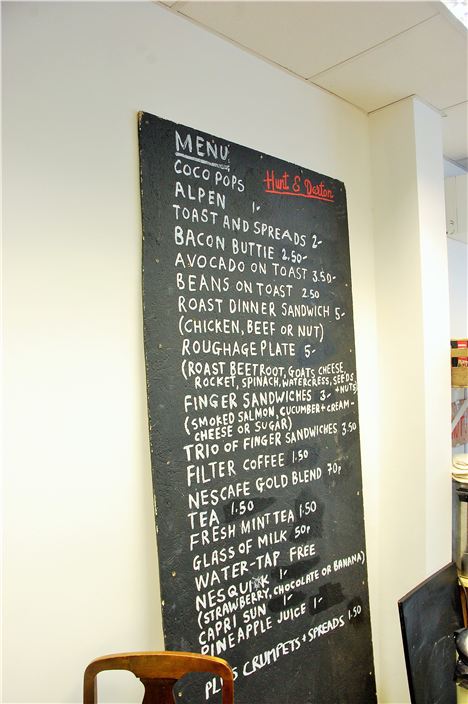 MENU
Hunt & Darton
COCO POPS
ALPEN 1-
TOAST AND SPREADS 2-
BACON BUTTIE 2.50-
AVOCADO ON TOAST 3.50-
BEANS ON TOAST 2.50
ROAST DINNER SANDWICH 5-
(CHICKEN, BEEF OR NUT)
ROUGHAGE PLATE 5-
(ROAST BEETROOT, GOATS CHEESE,
ROCKET, SPINACH, WATERCRESS, SEEDS
+ NUTS)
FINGER SANDWICHES 3-
(SMOKED SALMON, CUCUMBER + CREAM-
CHEESE OR SUGAR)
TRIO OF FINGER SANDWICHES 3.50
FILTER COFFEE 1.50
NESCAFE GOLD BLEND 70p
TEA 1.50
FRESH MINT TEA 1.50
GLASS OF MILK 50p
WATER-TAP FREE
NESQUIK 1-
(STRAWBERRY, CHOCOLATE OR BANANA)
CAPRI SUN 1-
PINEAPPLE JUICE 1-
PLUS CRUMPETS + SPREADS 1.50